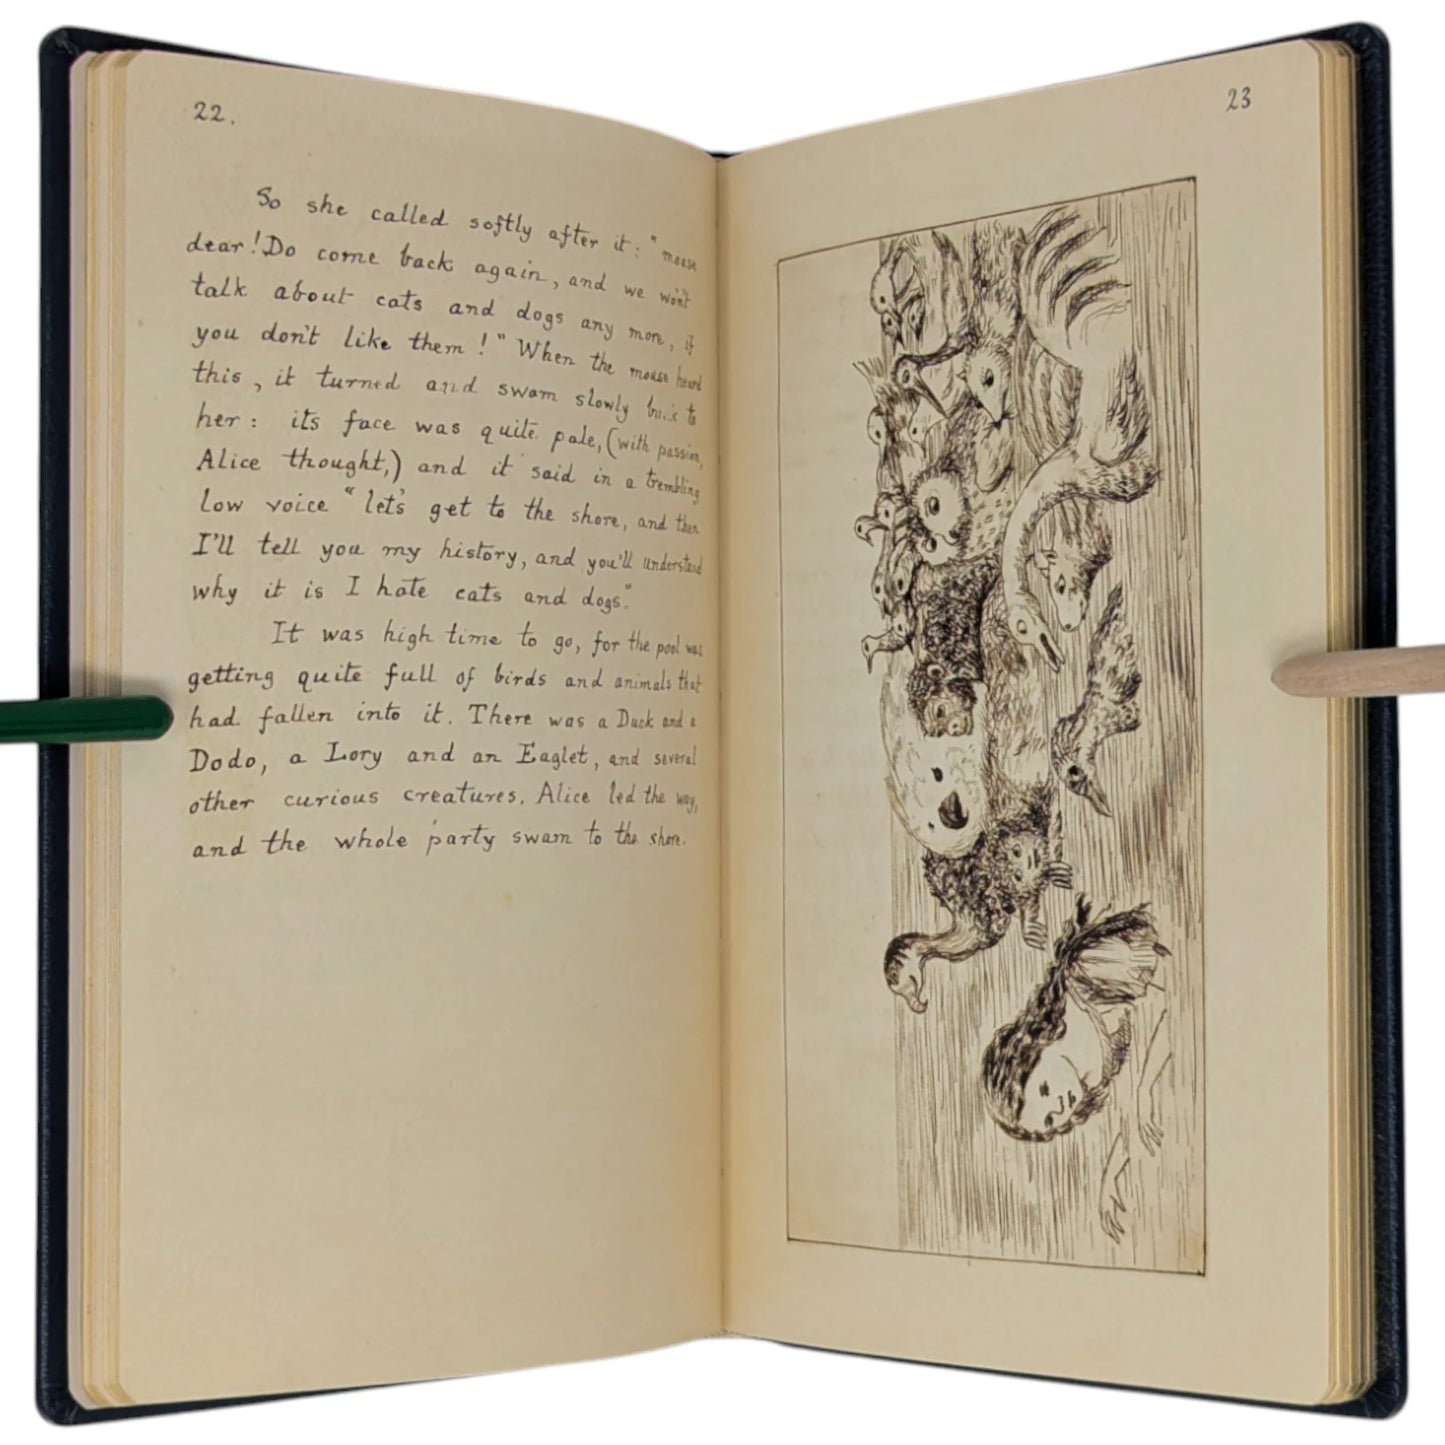 22.
So she called softly after it: "mouse
dear! Do come back again, and we won't
talk about cats and dogs any more, if
you don't like them!" When the mouse heard
this, it turned and swam slowly back to
her: its face was quite pale, (with passion,
Alice thought,) and it said in a trembling
low voice "let's get to the shore, and then
I'll tell you my history, and you'll understand
why it is I hate cats and dogs."
It was high time to go, for the pool was
getting quite full of birds and animals that
had fallen into it. There was a Duck and a
Dodo, a Lory and an Eaglet, and several
other curious creatures. Alice led the way,
and the whole party swam to the shore.
23